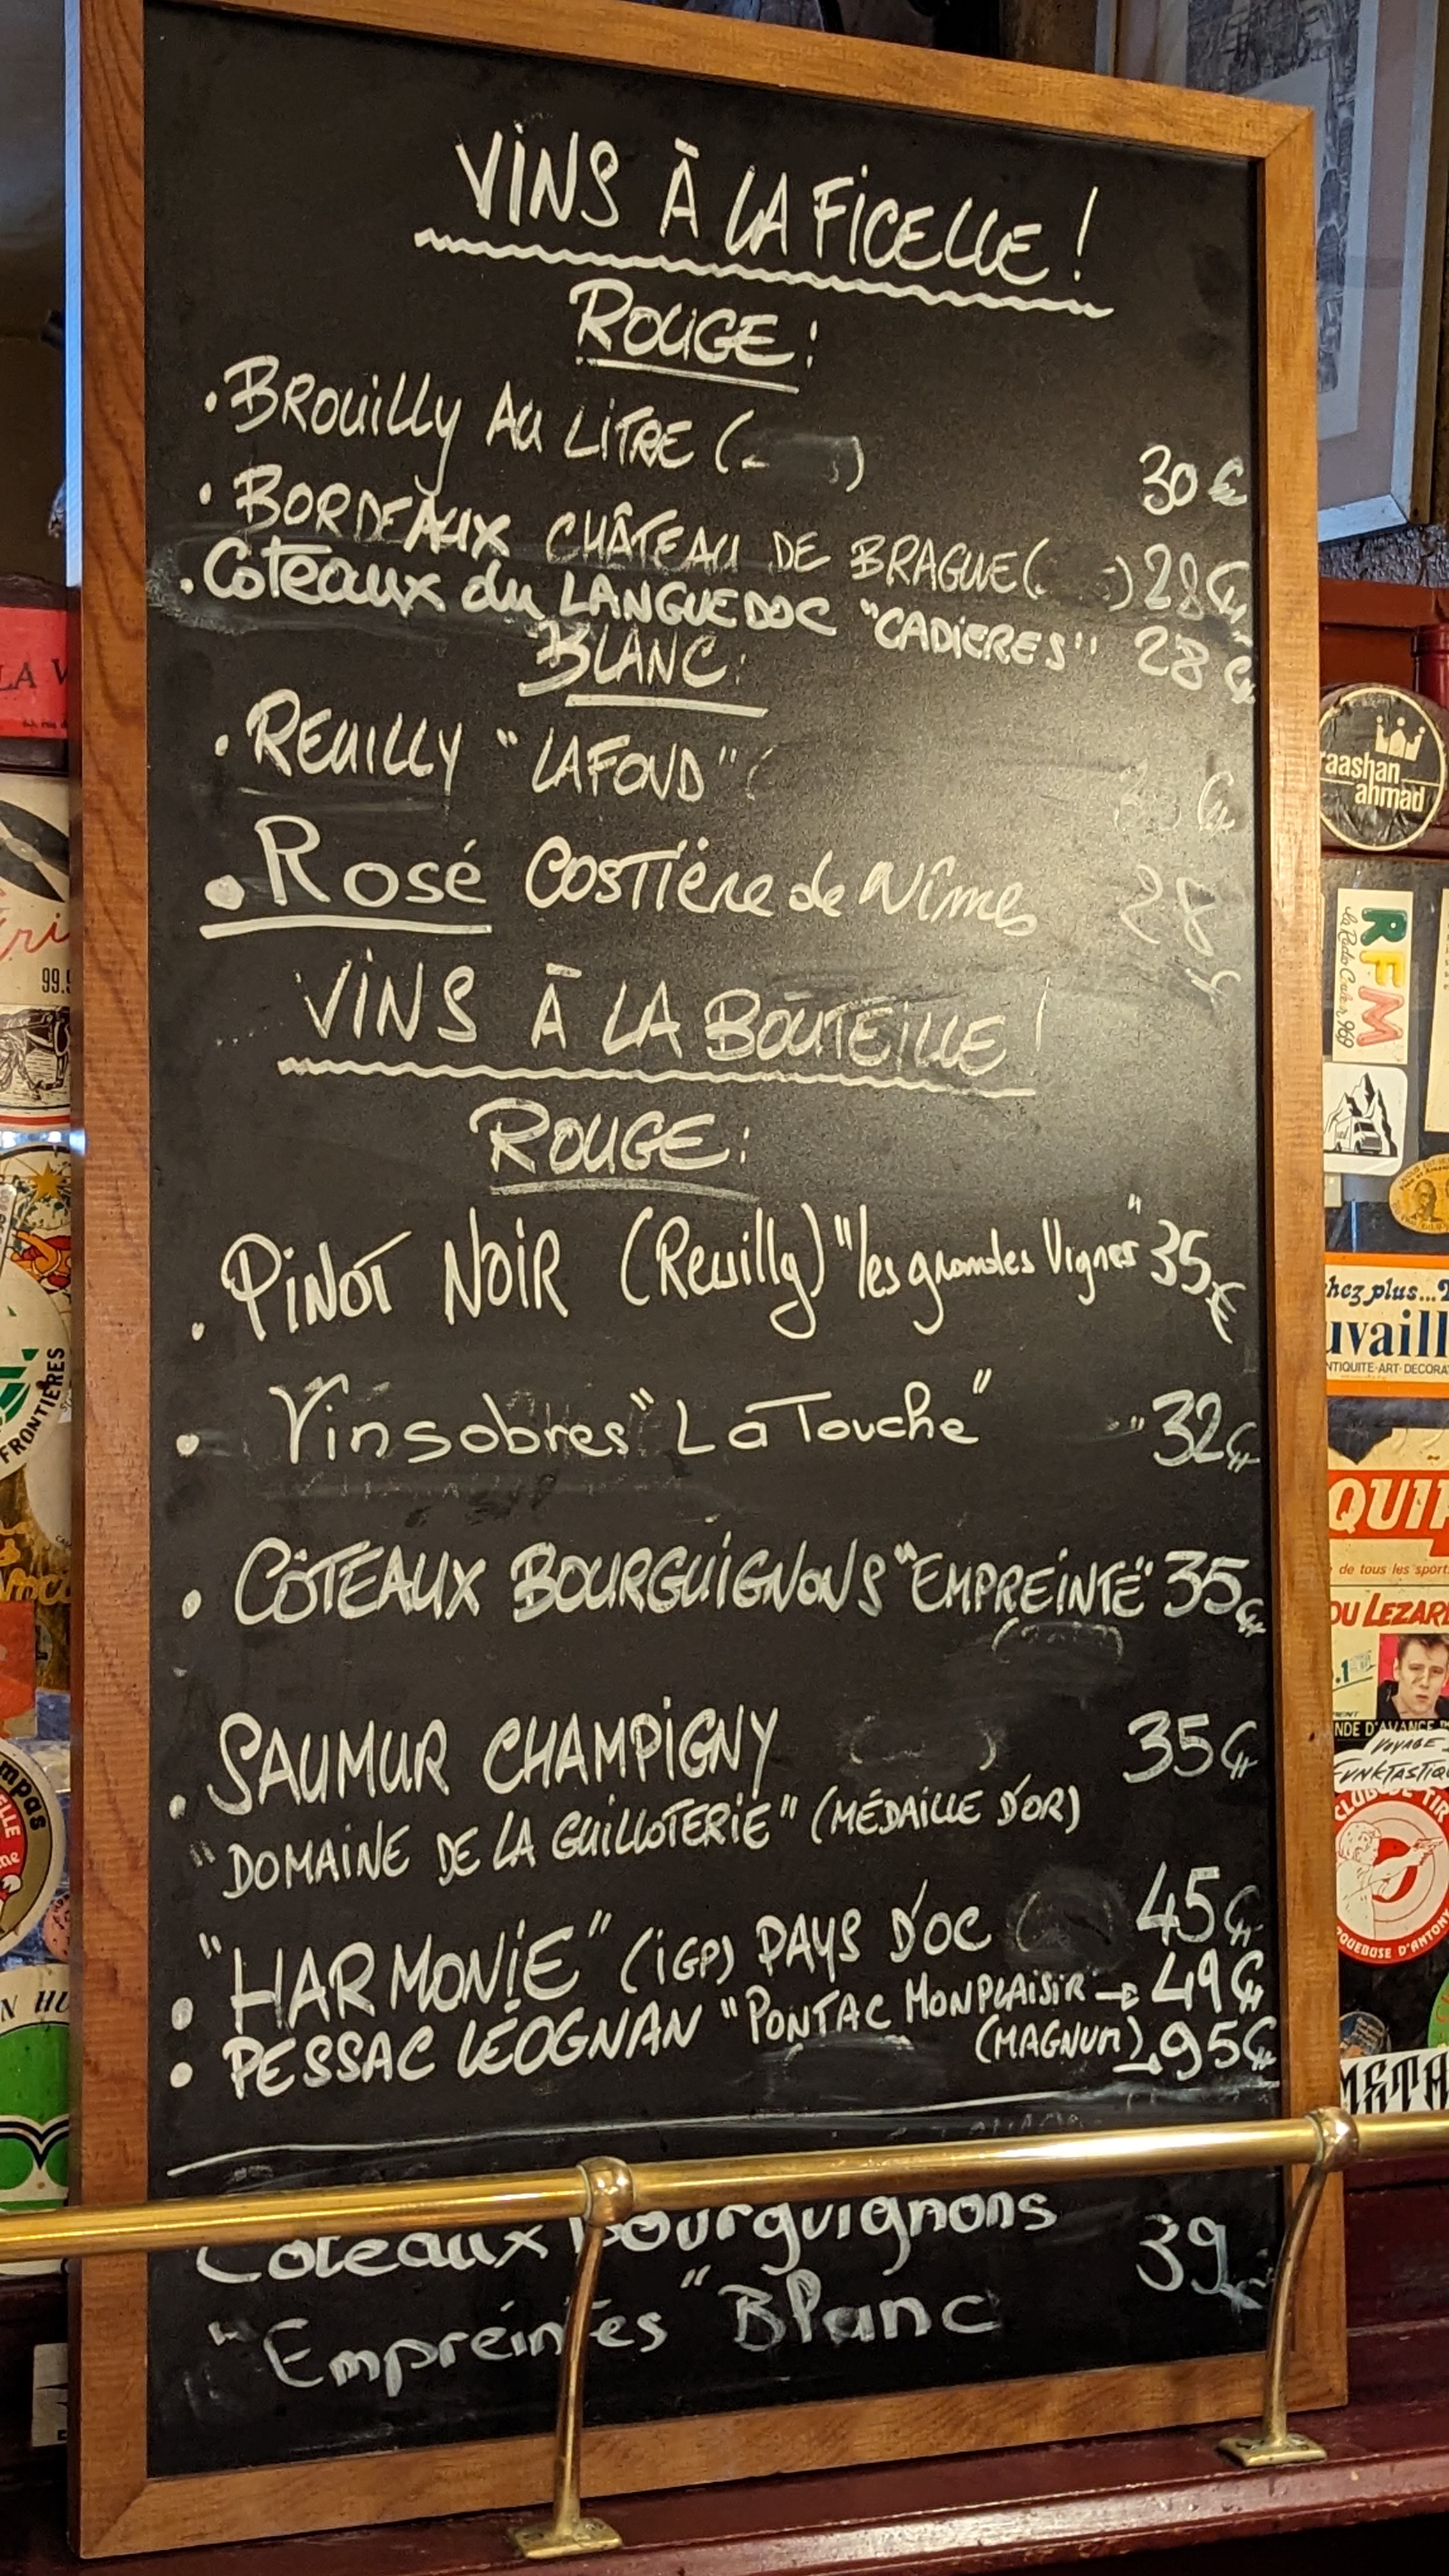 VINS À LA FICELLE !
ROUGE :
• BROUILLY AU LITRE ( ) 30 €
• BORDEAUX CHÂTEAU DE BRAGUE ( ) 28 €
• Coteaux du LANGUEDOC "CADIERES" 28 €
BLANC :
• REUILLY "LAFOND" ( €
• Rosé Costière de Nîmes 28 €
VINS À LA BOUTEILLE !
ROUGE :
• PINOT NOIR (Reuilly) "les grandes Vignes" 35 €
• Vinsobres "La Touche" 32 €
• CÔTEAUX BOURGUIGNONS "EMPREINTE" 35 €
• SAUMUR CHAMPIGNY 35 €
"DOMAINE DE LA GUILLOTERIE" (MÉDAILLE D'OR)
• "HARMONIE" (IGP) PAYS D'OC 45 €
• PESSAC LÉOGNAN "PONTAC MONPLAISIR → 49 €
(MAGNUM) → 95 €
Coteaux Bourguignons 39 €
"Empreintes" Blanc
LA V
99.9
FRONTIÈRES
raashan
ahmad
RFM
chez plus...
uvaill
ANTIQUITE-ART-DECORA
QUIP
de tous les sport
DU LEZARD
NDE D'AVANCE
VOYAGE
FUNKTASTIQU
CLUB DE TIR
QUEBUSE D'ANTONY
META